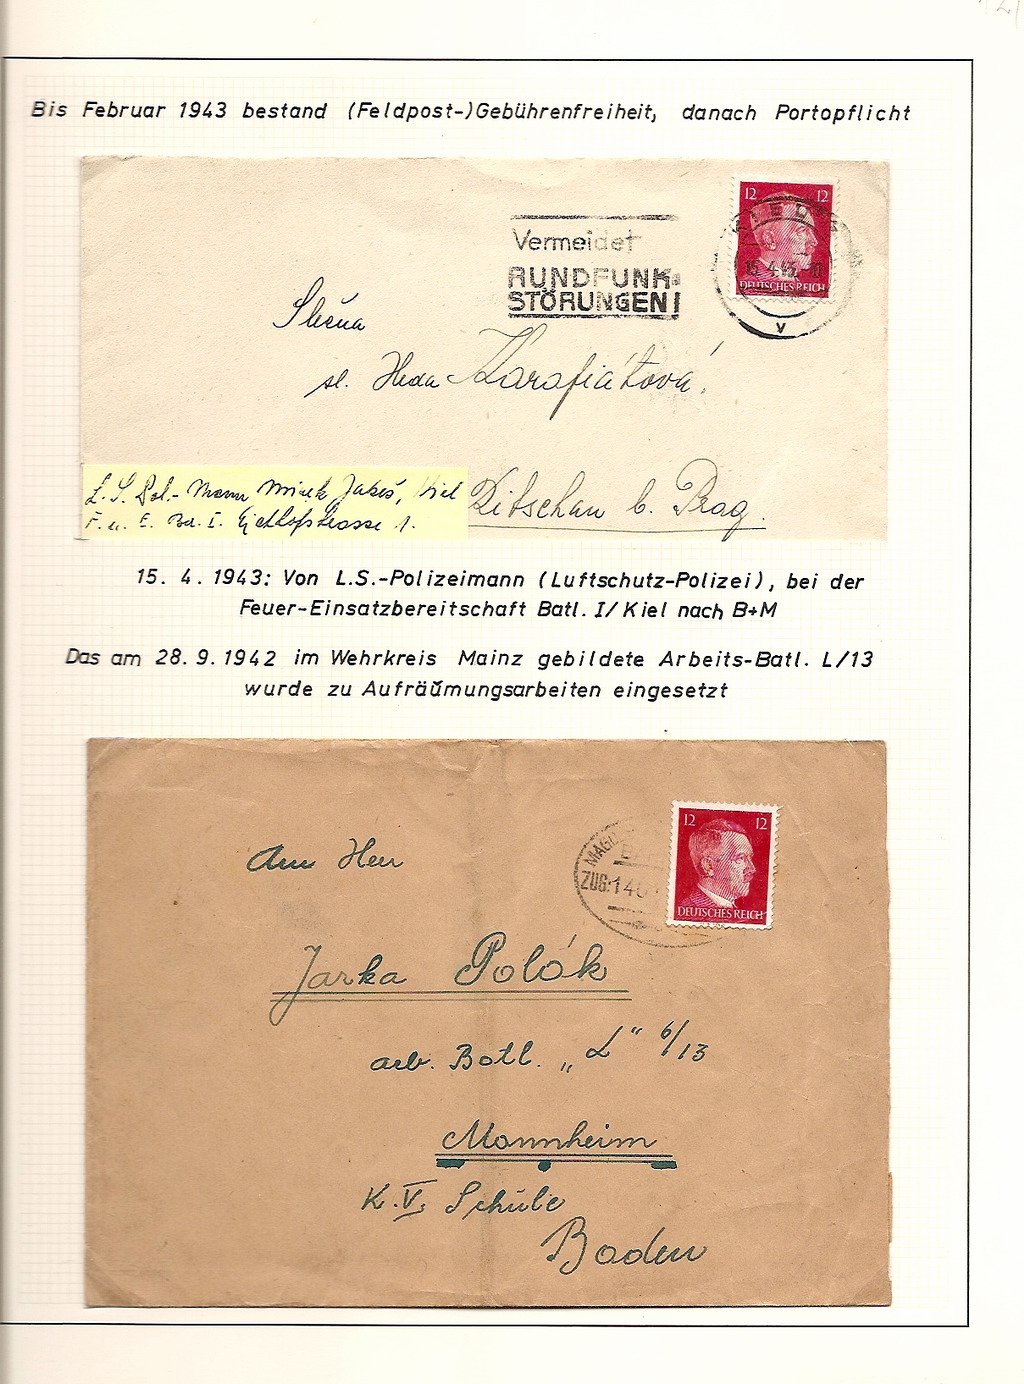 Bis Februar 1943 bestand (Feldpost-)Gebührenfreiheit, danach Portopflicht
12 12
DEUTSCHES REICH
Vermeidet
RUNDFUNK-
STÖRUNGEN!
15.4.43.-10
v
Slečna
sl. Heda Karafiátová.
Ritschan b. Prag.
L. S. Pol.- Mann Mirek Jakeš, Kiel
F. u. E. Ba. I.
15. 4. 1943: Von L.S.-Polizeimann (Luftschutz-Polizei), bei der
Feuer-Einsatzbereitschaft Batl. I/Kiel nach B+M
Das am 28.9.1942 im Wehrkreis Mainz gebildete Arbeits-Batl. L/13
wurde zu Aufräumungsarbeiten eingesetzt
12 12
DEUTSCHES REICH
ZUG:140
An Herr
Jarka Polák
arb. Batl. „L" 6/13
Mannheim
K.V. Schule
Baden